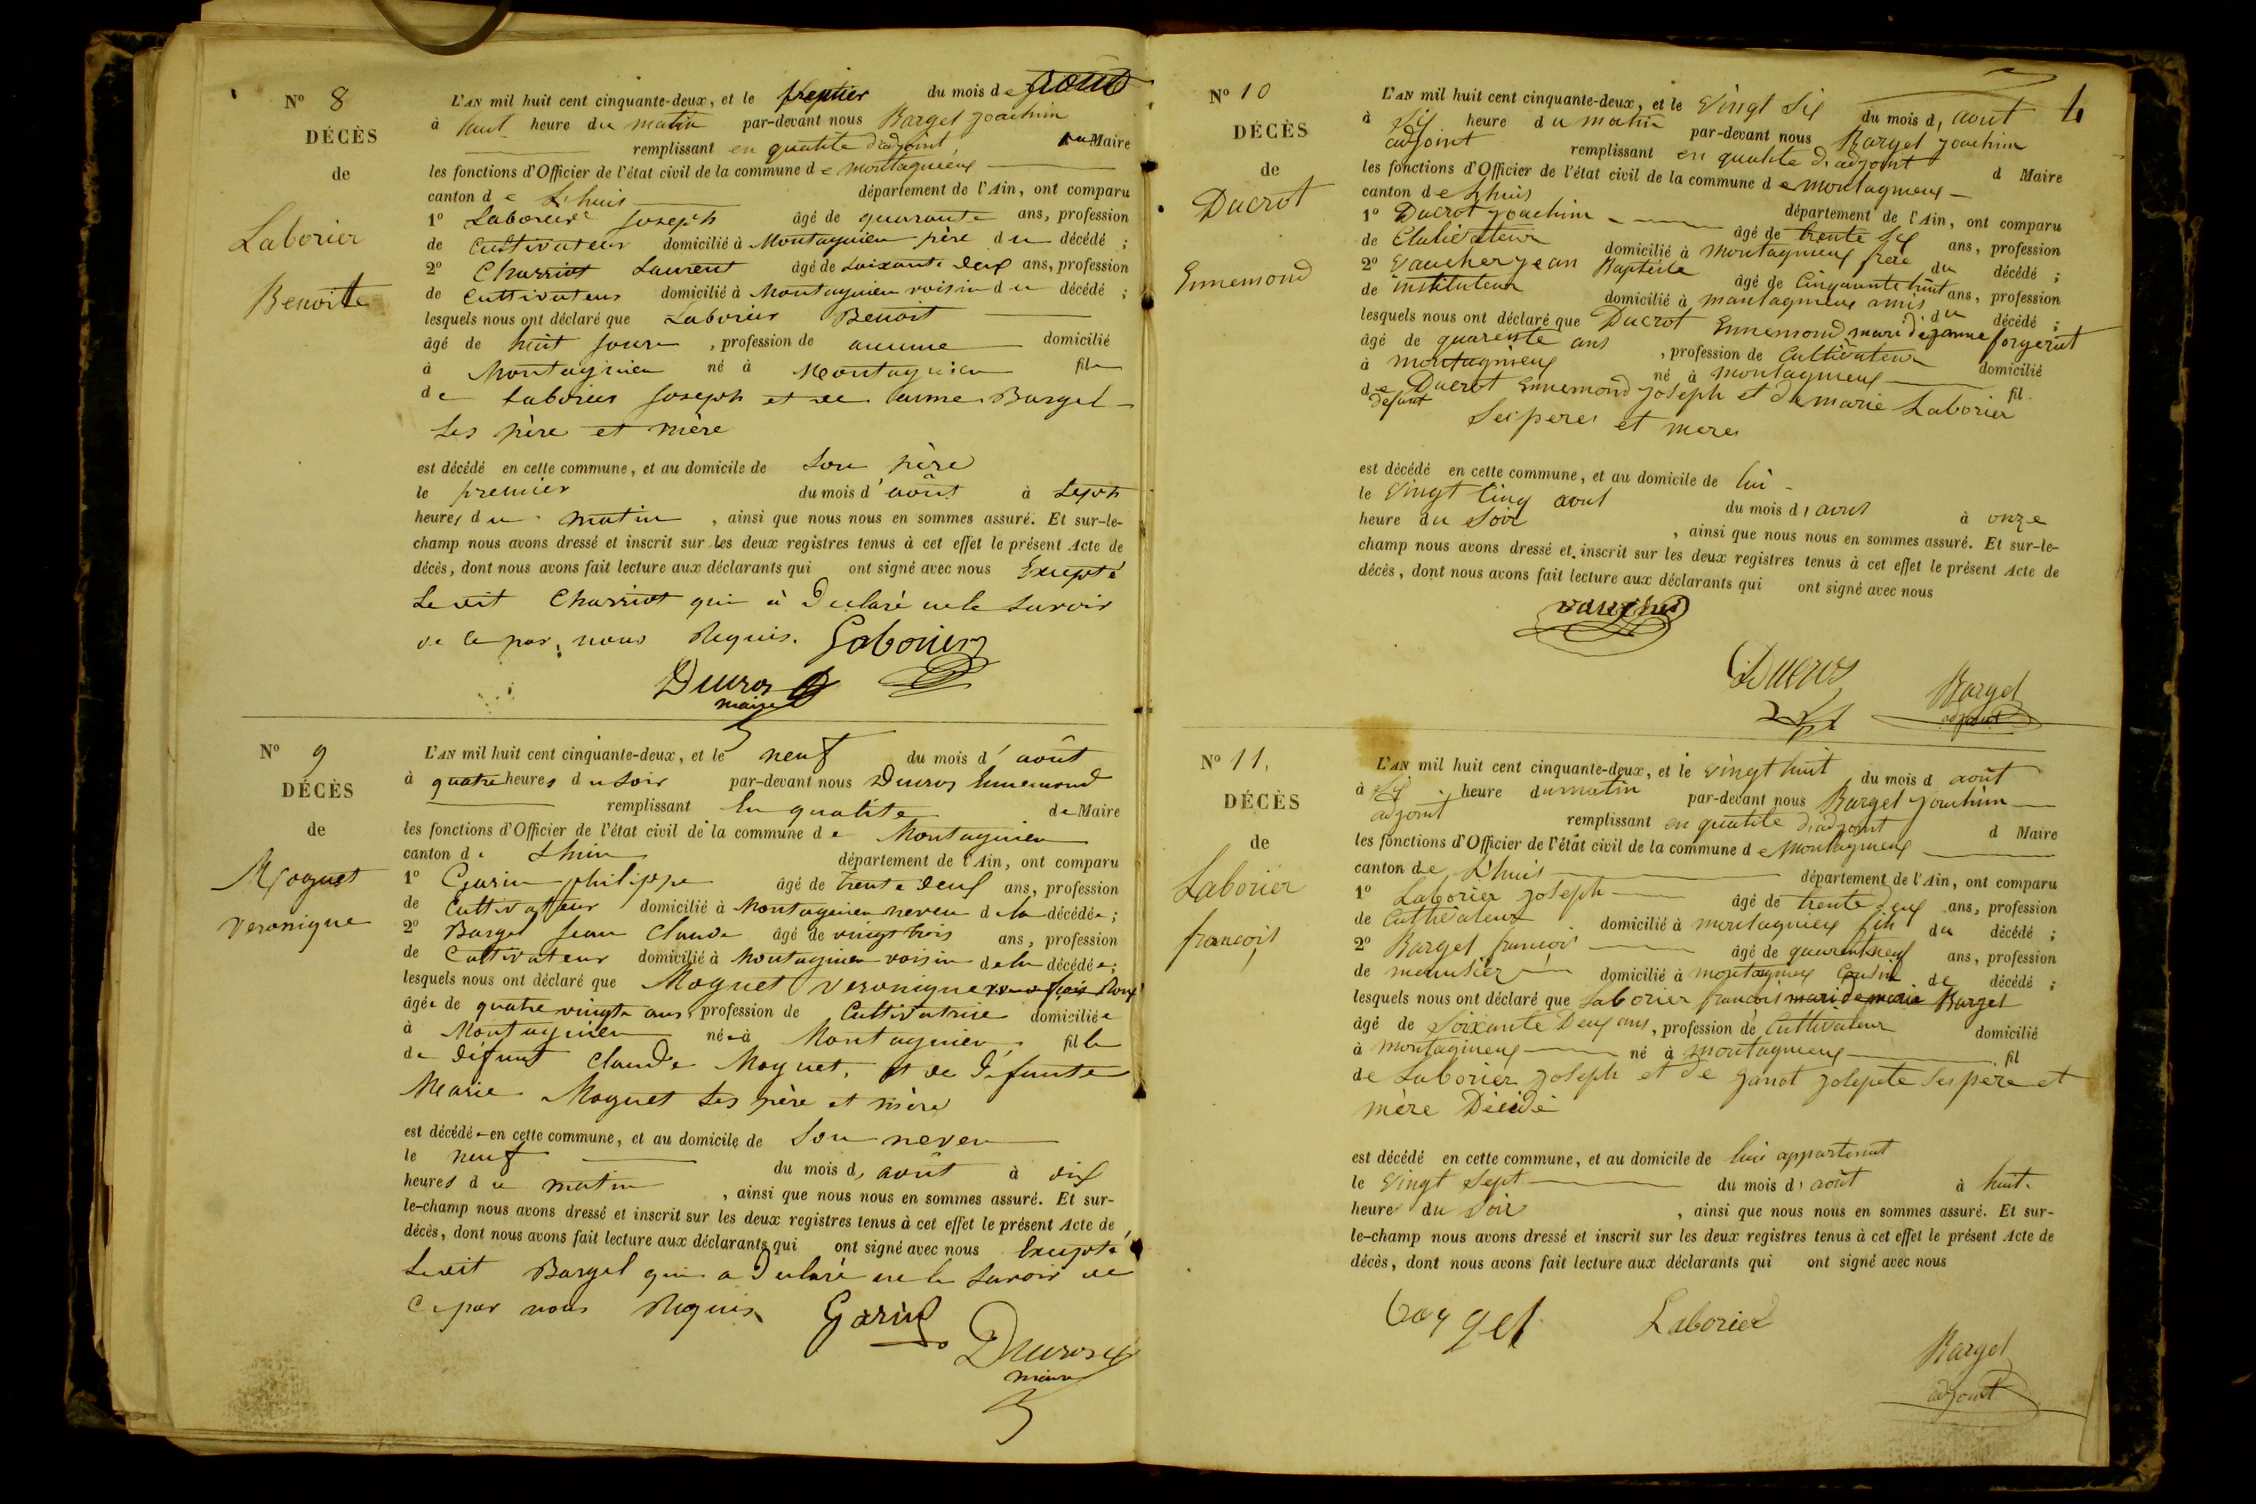 Nº 8
DÉCÈS
de
Laborier
Benoite
L'AN mil huit cent cinquante-deux, et le premier du mois de août
à heure du matin par-devant nous Bargel Joachim
remplissant en qualité d'adjoint Maire
les fonctions d'Officier de l'état civil de la commune de montagnieux
canton de L'huis département de l'Ain, ont comparu
1º Laborier Joseph âgé de quarante ans, profession
de Cultivateur domicilié à Montagnieu père du décédé ;
2º Charriot Laurent âgé de Soixante deux ans, profession
de Cultivateur domicilié à Montagnieu voisin du décédé ;
lesquels nous ont déclaré que Laborier Benoit
âgé de huit jours , profession de aucune domicilié
à Montagnieu né à Montagnieu fils
de Laborier Joseph et de Bargel
Ses père et mère
est décédé en cette commune, et au domicile de Son père
le premier du mois d'août à Sept
heures du matin , ainsi que nous nous en sommes assuré. Et sur-le-
champ nous avons dressé et inscrit sur les deux registres tenus à cet effet le présent Acte de
décès, dont nous avons fait lecture aux déclarants qui ont signé avec nous Excepté
Le dit Charriot qui à Déclaré ne le Savoir
de ce par nous Requis. Laborier
Ducros
maire
Nº 9
DÉCÈS
de
Moguet
Veronique
L'AN mil huit cent cinquante-deux, et le neuf du mois d'août
à quatre heures du Soir par-devant nous Ducros Ennemond
remplissant En qualité de Maire
les fonctions d'Officier de l'état civil de la commune de Montagnieu
canton de Lhuis département de l'Ain, ont comparu
1º Garin philippe âgé de trente deux ans, profession
de Cultivateur domicilié à Montagnieu neveu de la décédée ;
2º Bargel Jean Claude âgé de vingt trois ans, profession
de Cultivateur domicilié à Montagnieu voisin de la décédée ;
lesquels nous ont déclaré que Moguet Veronique
âgée de quatre vingts ans, profession de Cultivatrice domiciliée
à Montagnieu née à Montagnieu fille
de Défunt Claude Moguet, et de Défunte
Marie Moguet Ses père et mère
est décédée en cette commune, et au domicile de Son neveu
le neuf du mois d'août à dix
heures du matin , ainsi que nous nous en sommes assuré. Et sur-
le-champ nous avons dressé et inscrit sur les deux registres tenus à cet effet le présent Acte de
décès, dont nous avons fait lecture aux déclarants qui ont signé avec nous Excepté
Le dit Bargel qui a Déclaré ne le Savoir de
Ce par nous Requis Garin
Ducros
maire
4
Nº 10
DÉCÈS
de
Ducrot
Ennemond
L'AN mil huit cent cinquante-deux, et le vingt Six du mois d'août
à Six heure du matin par-devant nous Bargel Joachim
adjoint remplissant en qualité d'adjoint d Maire
les fonctions d'Officier de l'état civil de la commune de montagnieux
canton de Lhuis département de l'Ain, ont comparu
1º Ducrot Joachim âgé de trente Six ans, profession
de Cultivateur domicilié à montagnieux frère du décédé ;
2º Vaucher jean Baptiste âgé de Cinquante huit ans, profession
de instituteur domicilié à montagnieux amis du décédé ;
lesquels nous ont déclaré que Ducrot Ennemond mari de jeanne forgerat
âgé de quarente ans , profession de Cultivateur domicilié
à montagnieux né à montagnieux fil
de Ducrot Ennemond joseph et de marie Laborier
defunt
Ses peres et meres
est décédé en cette commune, et au domicile de lui
le vingt Cinq aout du mois d'aout à onze
heure du Soir , ainsi que nous nous en sommes assuré. Et sur-le-
champ nous avons dressé et inscrit sur les deux registres tenus à cet effet le présent Acte de
décès, dont nous avons fait lecture aux déclarants qui ont signé avec nous
vaucher
Ducros
Bargel
adjoint
Nº 11.
DÉCÈS
de
Laborier
françois
L'AN mil huit cent cinquante-deux, et le vingt huit du mois d août
à Six heure du matin par-devant nous Bargel joachim
adjoint remplissant en qualité d'adjoint d Maire
les fonctions d'Officier de l'état civil de la commune de montagnieux
canton de L'huis département de l'Ain, ont comparu
1º Laborier joseph âgé de trente deux ans, profession
de Cultivateur domicilié à montagnieux fils du décédé ;
2º Bargel françois âgé de quarente neuf ans, profession
de menuisier domicilié à montagnieux Cousin de décédé ;
lesquels nous ont déclaré que Laborier francois mari de marie Bargel
âgé de Soixante Deux ans, profession de Cultivateur domicilié
à montagnieux né à montagnieux fil
de Laborier joseph et de ganot josepete Ses père et
mère Décédé
est décédé en cette commune, et au domicile de lui appartenant
le vingt Sept du mois d'août à huit
heure du Soir , ainsi que nous nous en sommes assuré. Et sur-
le-champ nous avons dressé et inscrit sur les deux registres tenus à cet effet le présent Acte de
décès, dont nous avons fait lecture aux déclarants qui ont signé avec nous
bargel Laborier
Bargel
adjoint